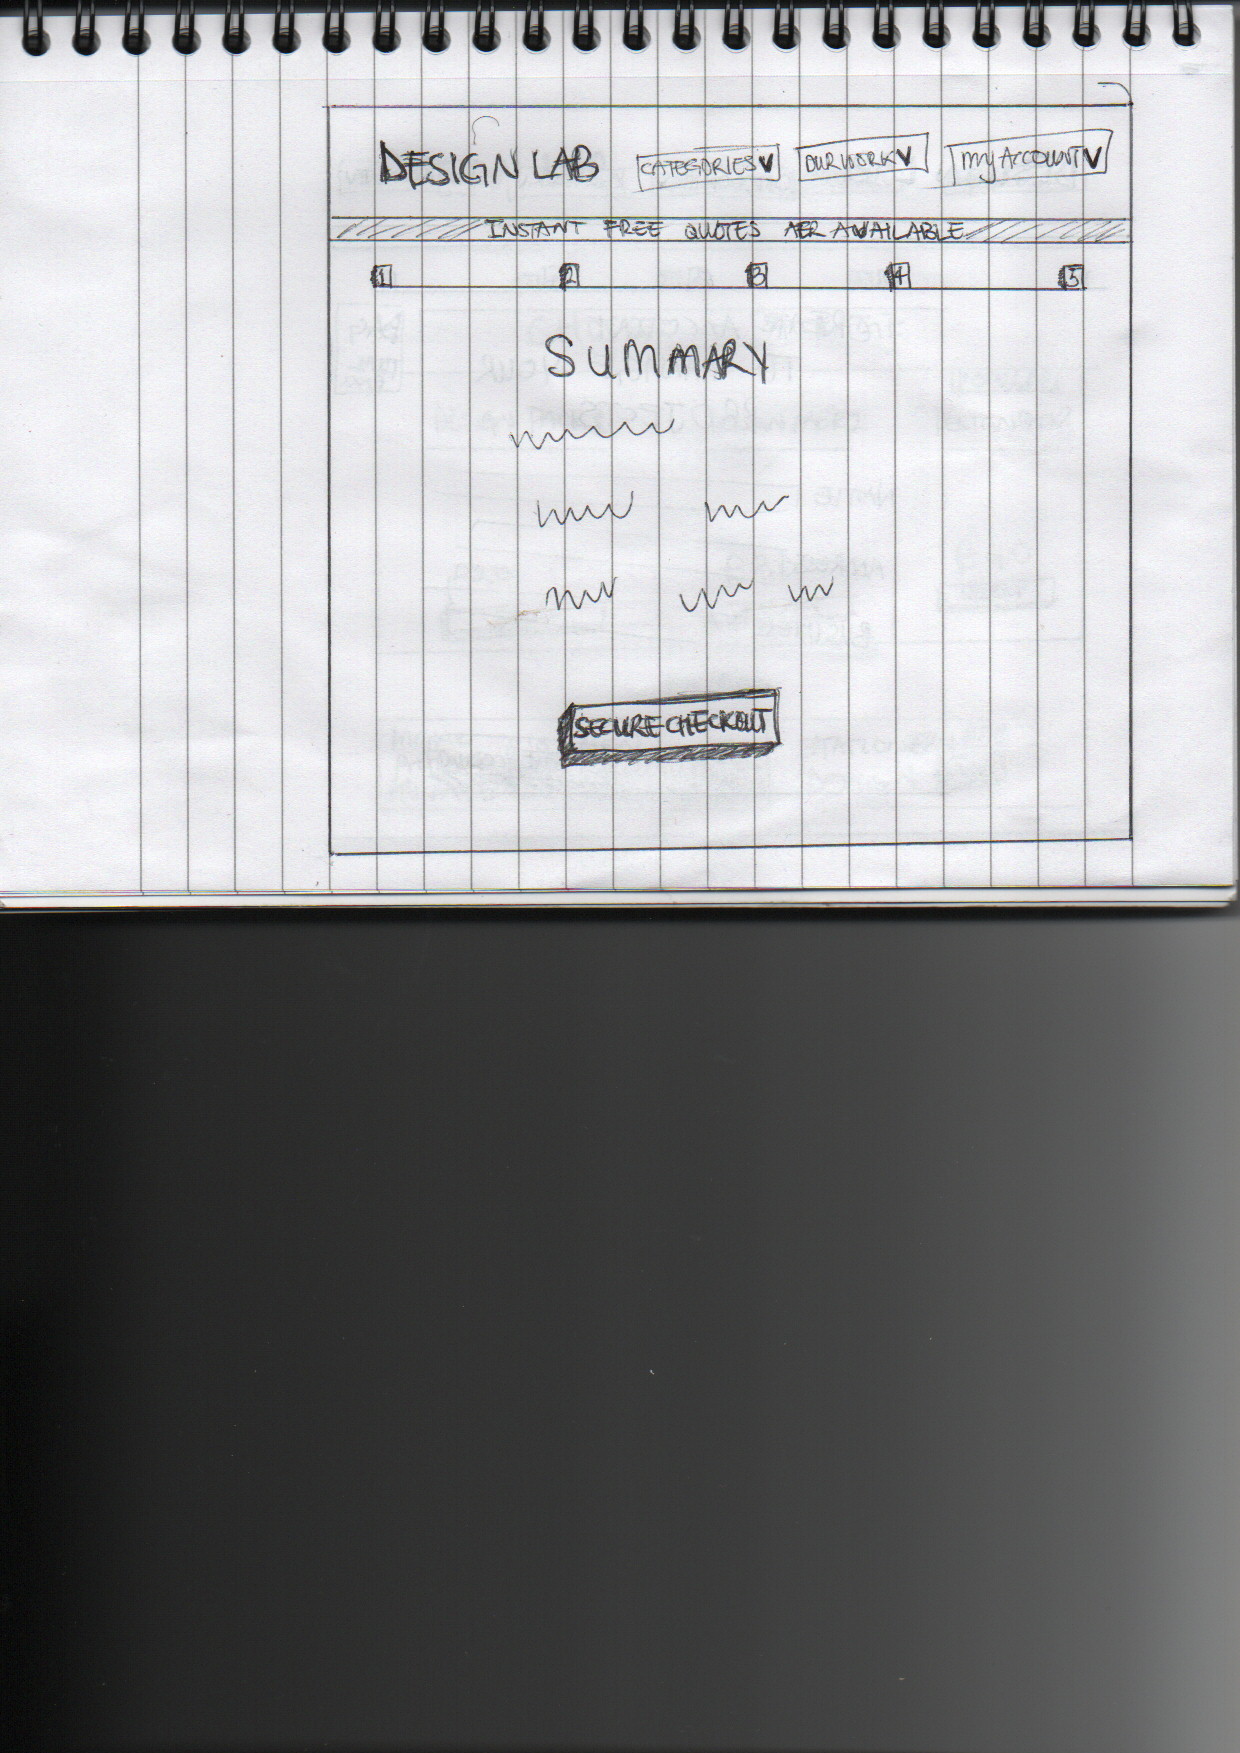 DESIGN LAB CATEGORIES OUR WORK MY ACCOUNT
INSTANT FREE QUOTES AER AVAILABLE
1 2 3 4 5
SUMMARY
SECURE CHECKOUT